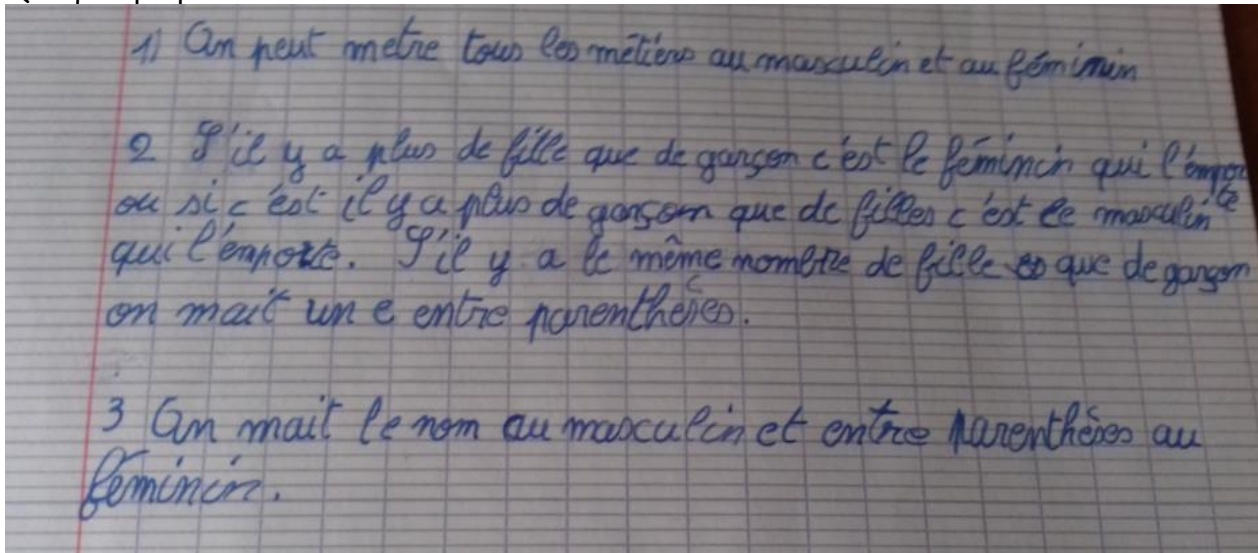 1) On peut metre tous les métiers au masculin et au féminin
2 S'il y a plus de fille que de garçon c'est le féminin qui l'emporte
ou si c'est il y a plus de garçom que de filles c'est le masculin
qui l'emporte. S'il y a le même nombre de fille que de garçom
on mait un e entre parenthèses.
3 On mait le nom au masculin et entre parenthèses au
féminin.